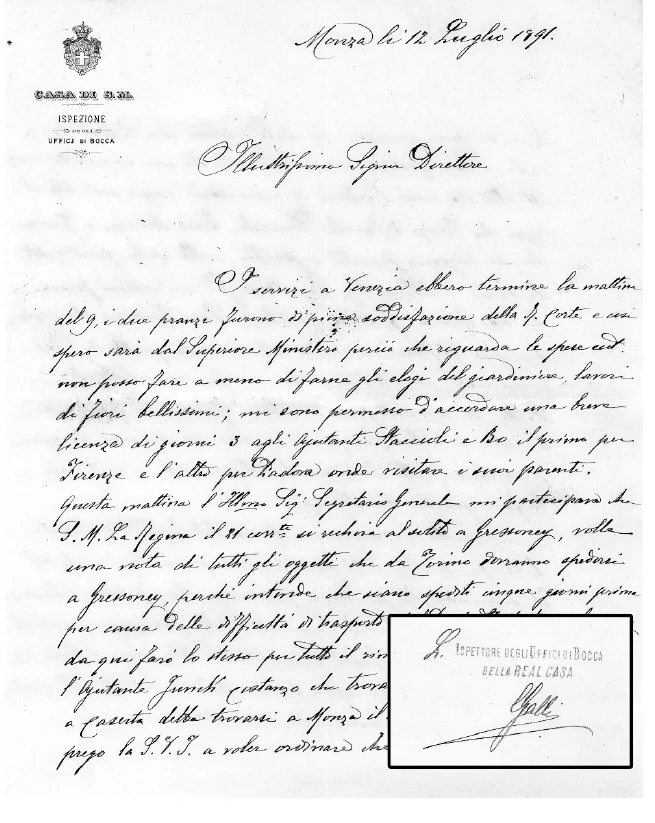 Monza li 12 Luglio 1891.
CASA DI S.M.
ISPEZIONE
DEGLI
UFFICJ DI BOCCA
Illustrissimo Signor Direttore
I servizi a Venezia ebbero termine la mattina
del 9, i due pranzi furono di piena soddisfazione della R. Corte e così
spero sarà dal Superiore Ministero perciò che riguarda le spese ect.
non posso fare a meno di farne gli elogi del giardiniere, lavori
di fiori bellissimi; mi sono permesso d'accordare una breve
licenza di giorni 3 agli Ajutanti Staccioli e Bo il primo per
Firenze e l'altro per Padova onde visitare i suoi parenti.
Questa mattina l'Illmo Sigr Segretario Generale mi partecipava che
S. M. La Regina il 21 corrte si recherà al solito a Gressoney, volle
una nota di tutti gli oggetti che da Torino dovranno spedirsi
a Gressoney, perché intende che siano spediti cinque giorni prima
per causa delle difficoltà di trasporto
da qui farò lo stesso per tutto il
l'Ajutante Junck Costanzo che
a Caserta debba trovarsi a Monza il
prego la S.V.I. a voler ordinare che
L. ISPETTORE DEGLI UFFICI DI BOCCA
DELLA REAL CASA
Galli